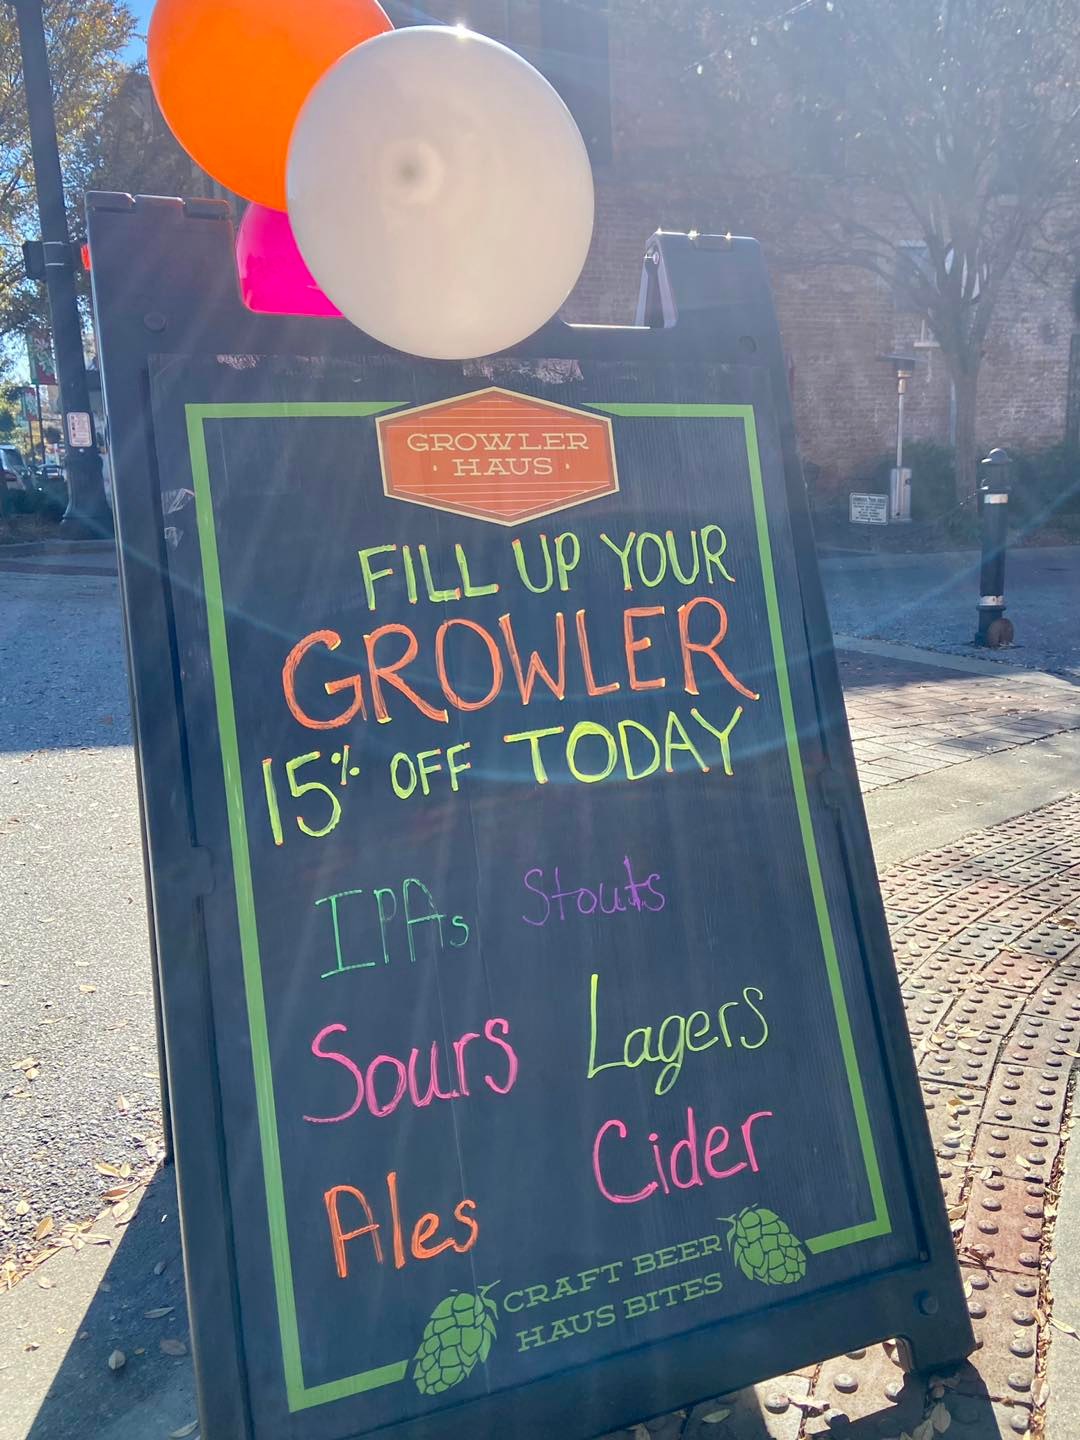 GROWLER
· HAUS ·
FILL UP YOUR
GROWLER
15% OFF TODAY
IPAs Stouts
Sours Lagers
Ales Cider
CRAFT BEER
HAUS BITES